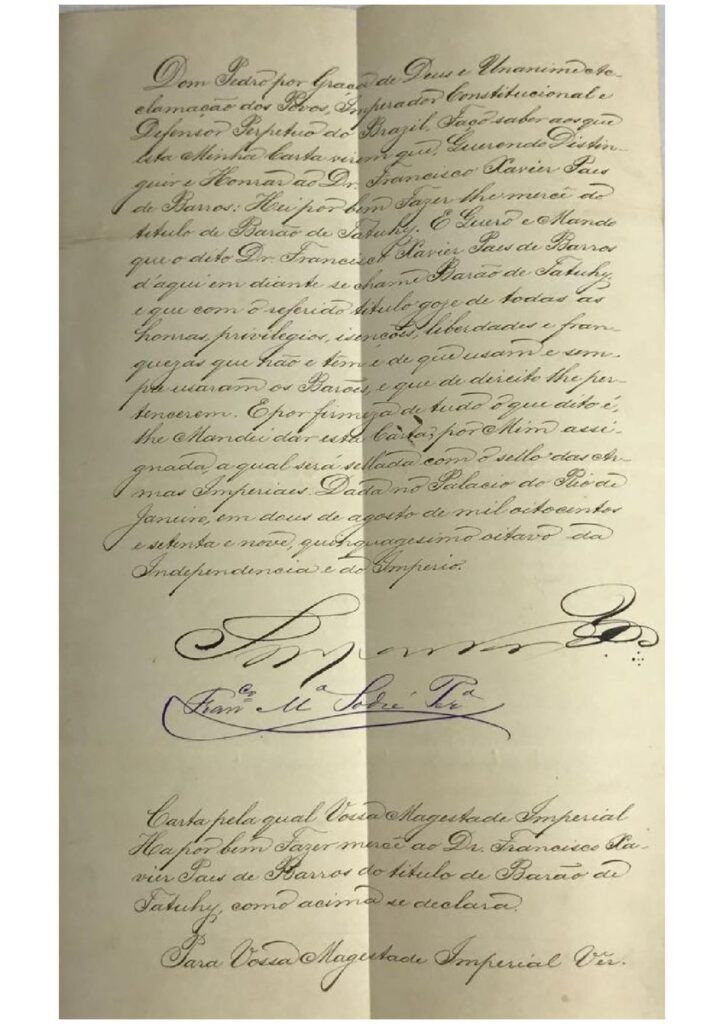 Dom Pedro por Graça de Deus e Unanime Ac-
clamação dos Povos, Imperador Constitucional e
Defensor Perpetuo do Brazil, Faço saber aos que
esta Minha Carta virem que, Querendo Distin-
guir e Honrar ao Dr. Francisco Xavier Paes
de Barros: Hei por bem Fazer lhe mercê do
titulo de Barão de Tatuhy. E Quero e Mando
que o dito Dr. Francisco Xavier Paes de Barros
d'aqui em diante se chame Barão de Tatuhy,
e que com o referido titulo goze de todas as
honras, privilegios, isenções, liberdades e fran-
quezas que hão e têm e de que usam e sem-
pre usaram os Barões, e que de direito lhe per-
tencerem. E por firmeza de tudo o que dito é,
lhe Mandei dar esta Carta, por Mim assi-
gnada, a qual será sellada com o sello das Ar-
mas Imperiaes. Dada no Palacio do Rio de
Janeiro, em dous de agosto de mil oitocentos
e setenta e nove, quinquagesimo oitavo da
Independencia e do Imperio.
Imperador
Fran.co M.a Sodré Per.a
Carta pela qual Vossa Magestade Imperial
Ha por bem Fazer mercê ao Dr. Francisco Xa-
vier Paes de Barros do titulo de Barão de
Tatuhy, como acima se declara.
Para Vossa Magestade Imperial Vêr.